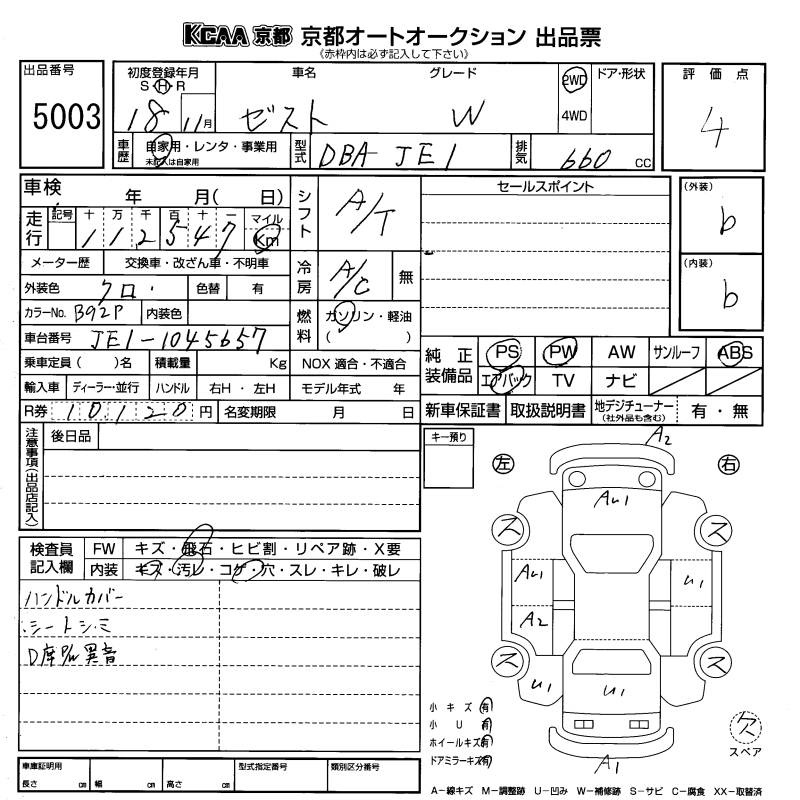 KCAA 京都 京都オートオークション 出品票
(赤枠内は必ず記入して下さい)
出品番号
5003
初度登録年月
S・H・R
18 11月
車名
ゼスト
グレード
W
2WD
4WD
ドア・形状
評価点
4
車歴
自家用・レンタ・事業用
未記入は自家用
型式
DBA JE1
排気
660 cc
車検 年 月( 日)
走行
記号 十 万 千 百 十 一 マイル
112547 Km
メーター歴 交換車・改ざん車・不明車
外装色 クロ・ 色替 有
カラーNo. B92P 内装色
車台番号 JE1-1045657
乗車定員( )名 積載量 Kg
輸入車 ディーラー・並行 ハンドル 右H・左H
R券 10,120 円 名変期限 月 日
シフト A/T
冷房 A/C 無
燃料 ガソリン・軽油
( )
NOX 適合・不適合
モデル年式 年
セールスポイント
(外装)
b
(内装)
b
純正装備品
PS PW AW サンルーフ ABS
エアバック TV ナビ
新車保証書 取扱説明書 地デジチューナー
(社外品も含む) 有・無
注意事項(出品店記入)
後日品
キー預り
左
右
A2
AU1
ス
ス
AU1
U1
A2
ス
ス
U1
U1
A1
検査員記入欄
FW キズ・飛石・ヒビ割・リペア跡・X要
内装 キズ・汚レ・コゲ・穴・スレ・キレ・破レ
ハンドルカバー
・シートシミ
D席P/W異音
小キズ 有
小U 有
ホイールキズ 有
ドアミラーキズ 有
欠
スペア
車庫証明用
長さ cm 幅 cm 高さ cm
型式指定番号
類別区分番号
A－線キズ M－調整跡 U－凹み W－補修跡 S－サビ C－腐食 XX－取替済